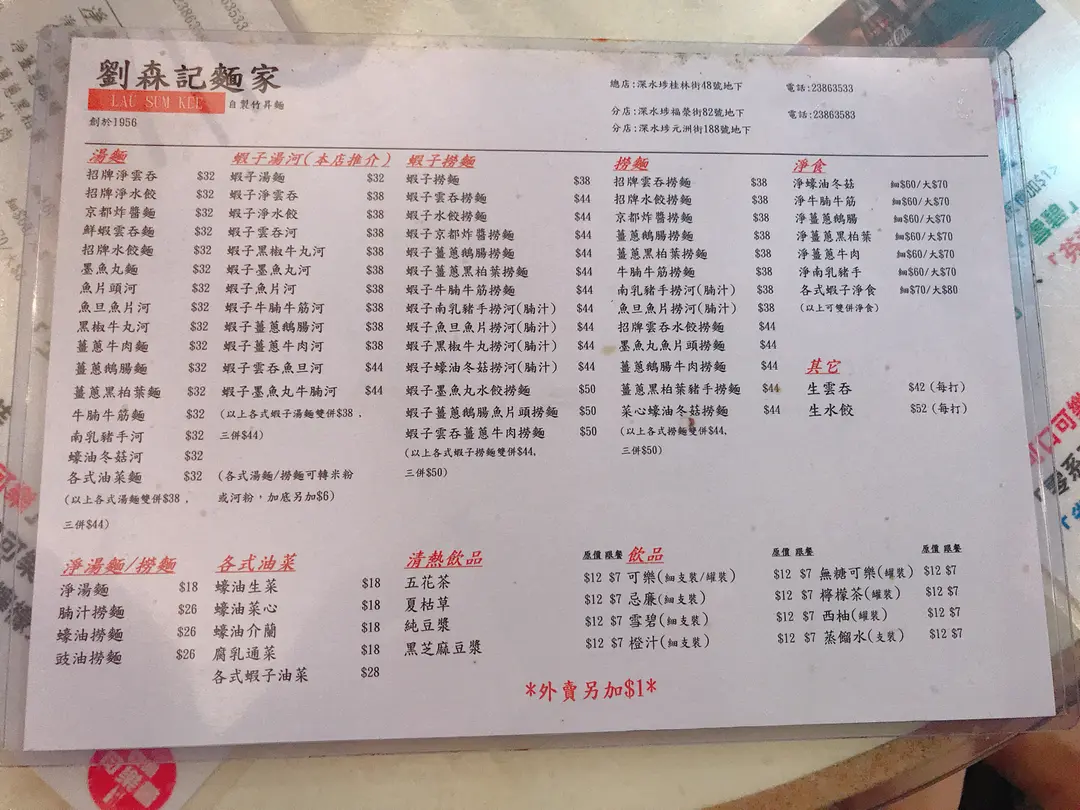 劉森記麵家
LAU SUM KEE 自製竹昇麵
創於1956
總店:深水埗桂林街48號地下 電話:23863533
分店:深水埗福榮街82號地下 電話:23863583
分店:深水埗元洲街188號地下
湯麵
招牌淨雲吞 $32
招牌淨水餃 $32
京都炸醬麵 $32
鮮蝦雲吞麵 $32
招牌水餃麵 $32
墨魚丸麵 $32
魚片頭河 $32
魚旦魚片河 $32
黑椒牛丸河 $32
薑蔥牛肉麵 $32
薑蔥鵝腸麵 $32
薑蔥黑柏葉麵 $32
牛腩牛筋麵 $32
南乳豬手河 $32
蠔油冬菇河 $32
各式油菜麵 $32
(以上各式湯麵雙併$38，
三併$44)
蝦子湯河(本店推介)
蝦子湯麵 $32
蝦子淨雲吞 $38
蝦子淨水餃 $38
蝦子雲吞河 $38
蝦子黑椒牛丸河 $38
蝦子墨魚丸河 $38
蝦子魚片河 $38
蝦子牛腩牛筋河 $38
蝦子薑蔥鵝腸河 $38
蝦子薑蔥牛肉河 $38
蝦子雲吞魚旦河 $44
蝦子墨魚丸牛腩河 $44
(以上各式蝦子湯麵雙併$38，
三併$44)
(各式湯麵/撈麵可轉米粉
或河粉，加底另加$6)
蝦子撈麵
蝦子撈麵 $38
蝦子雲吞撈麵 $44
蝦子水餃撈麵 $44
蝦子京都炸醬撈麵 $44
蝦子薑蔥鵝腸撈麵 $44
蝦子薑蔥黑柏葉撈麵 $44
蝦子牛腩牛筋撈麵 $44
蝦子南乳豬手撈河(腩汁) $44
蝦子魚旦魚片撈河(腩汁) $44
蝦子黑椒牛丸撈河(腩汁) $44
蝦子蠔油冬菇撈河(腩汁) $44
蝦子墨魚丸水餃撈麵 $50
蝦子薑蔥鵝腸魚片頭撈麵 $50
蝦子雲吞薑蔥牛肉撈麵 $50
(以上各式蝦子撈麵雙併$44，
三併$50)
撈麵
招牌雲吞撈麵 $38
招牌水餃撈麵 $38
京都炸醬撈麵 $38
薑蔥鵝腸撈麵 $38
薑蔥黑柏葉撈麵 $38
牛腩牛筋撈麵 $38
南乳豬手撈河(腩汁) $38
魚旦魚片撈河(腩汁) $38
招牌雲吞水餃撈麵 $44
墨魚丸魚片頭撈麵 $44
薑蔥鵝腸牛肉撈麵 $44
薑蔥黑柏葉豬手撈麵 $44
菜心蠔油冬菇撈麵 $44
(以上各式撈麵雙併$44，
三併$50)
淨食
淨蠔油冬菇 細$60/大$70
淨牛腩牛筋 細$60/大$70
淨薑蔥鵝腸 細$60/大$70
淨薑蔥黑柏葉 細$60/大$70
淨薑蔥牛肉 細$60/大$70
淨南乳豬手 細$60/大$70
各式蝦子淨食 細$70/大$80
(以上可雙併淨食)
其它
生雲吞 $42 (每打)
生水餃 $52 (每打)
淨湯麵/撈麵
淨湯麵 $18
腩汁撈麵 $26
蠔油撈麵 $26
豉油撈麵 $26
各式油菜
蠔油生菜 $18
蠔油菜心 $18
蠔油介蘭 $18
腐乳通菜 $18
各式蝦子油菜 $28
清熱飲品 原價 跟餐
五花茶 $12 $7
夏枯草 $12 $7
純豆漿 $12 $7
黑芝麻豆漿 $12 $7
飲品 原價 跟餐 原價 跟餐
可樂(細支裝/罐裝) $12 $7 無糖可樂(罐裝) $12 $7
忌廉(細支裝) $12 $7 檸檬茶(罐裝) $12 $7
雪碧(細支裝) $12 $7 西柚(罐裝) $12 $7
橙汁(細支裝) $12 $7 蒸餾水(支裝) $12 $7
*外賣另加$1*